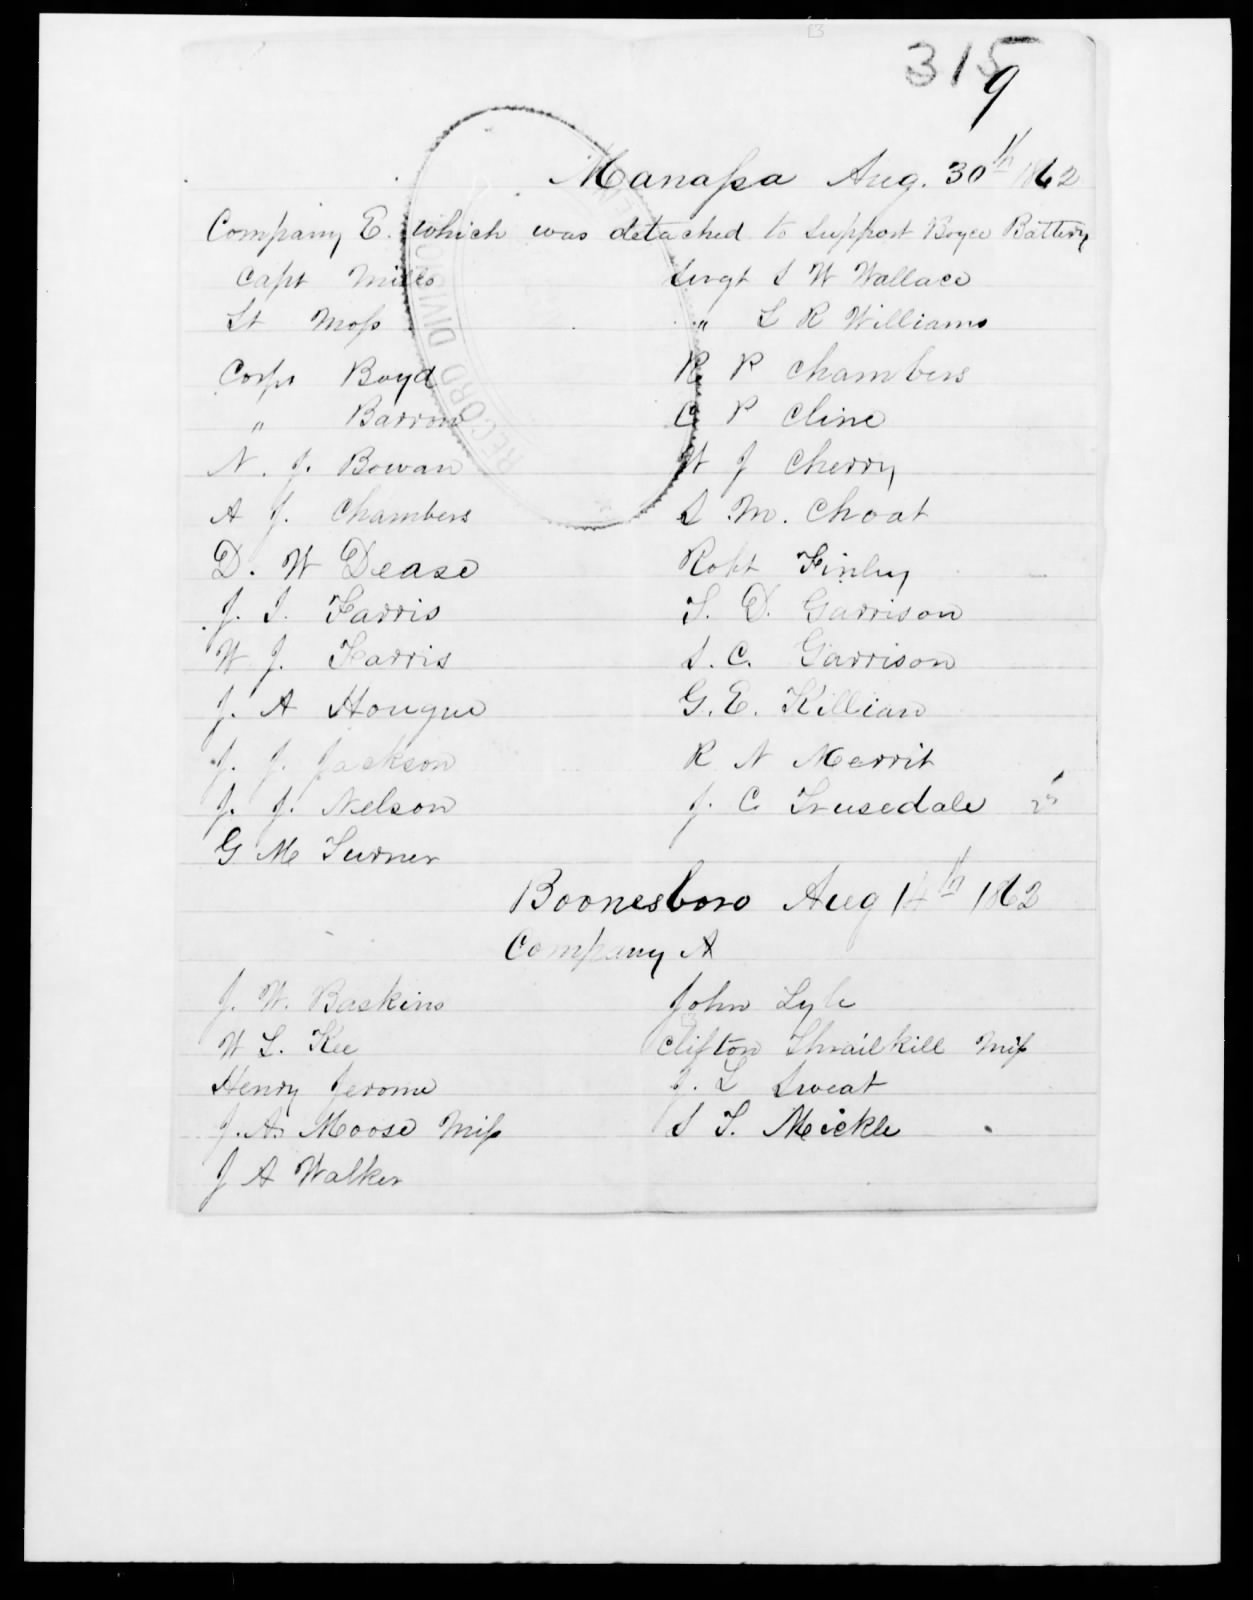 315
9
Manassa Aug. 30th 1862
Company E. which was detached to Support Boyce Battery
Capt Mills Sergt S W Wallace
Lt Moss " L R Williams
Corpr Boyd R P Chambers
" Barron C P Cline
N. J. Bowan W J Cherry
A J. Chambers S M. Choat
D. W Dease Robt Finley
J. I. Farris T. D. Garrison
W J. Farris S. C. Garrison
J. A Hougue G. E. Killian
J. J. Jackson R N Merrit
J. J. Nelson J. C Trusedale 25
G M Turner
Boonesboro Aug 14th 1862
Company A
J. W. Baskins John Lyle
W L. Kee Clifton Thrailkill Miss
Henry Jerome J. L Sweat
J. A. Moose Miss S T. Mickle
J A Walker
RECORD DIVISION